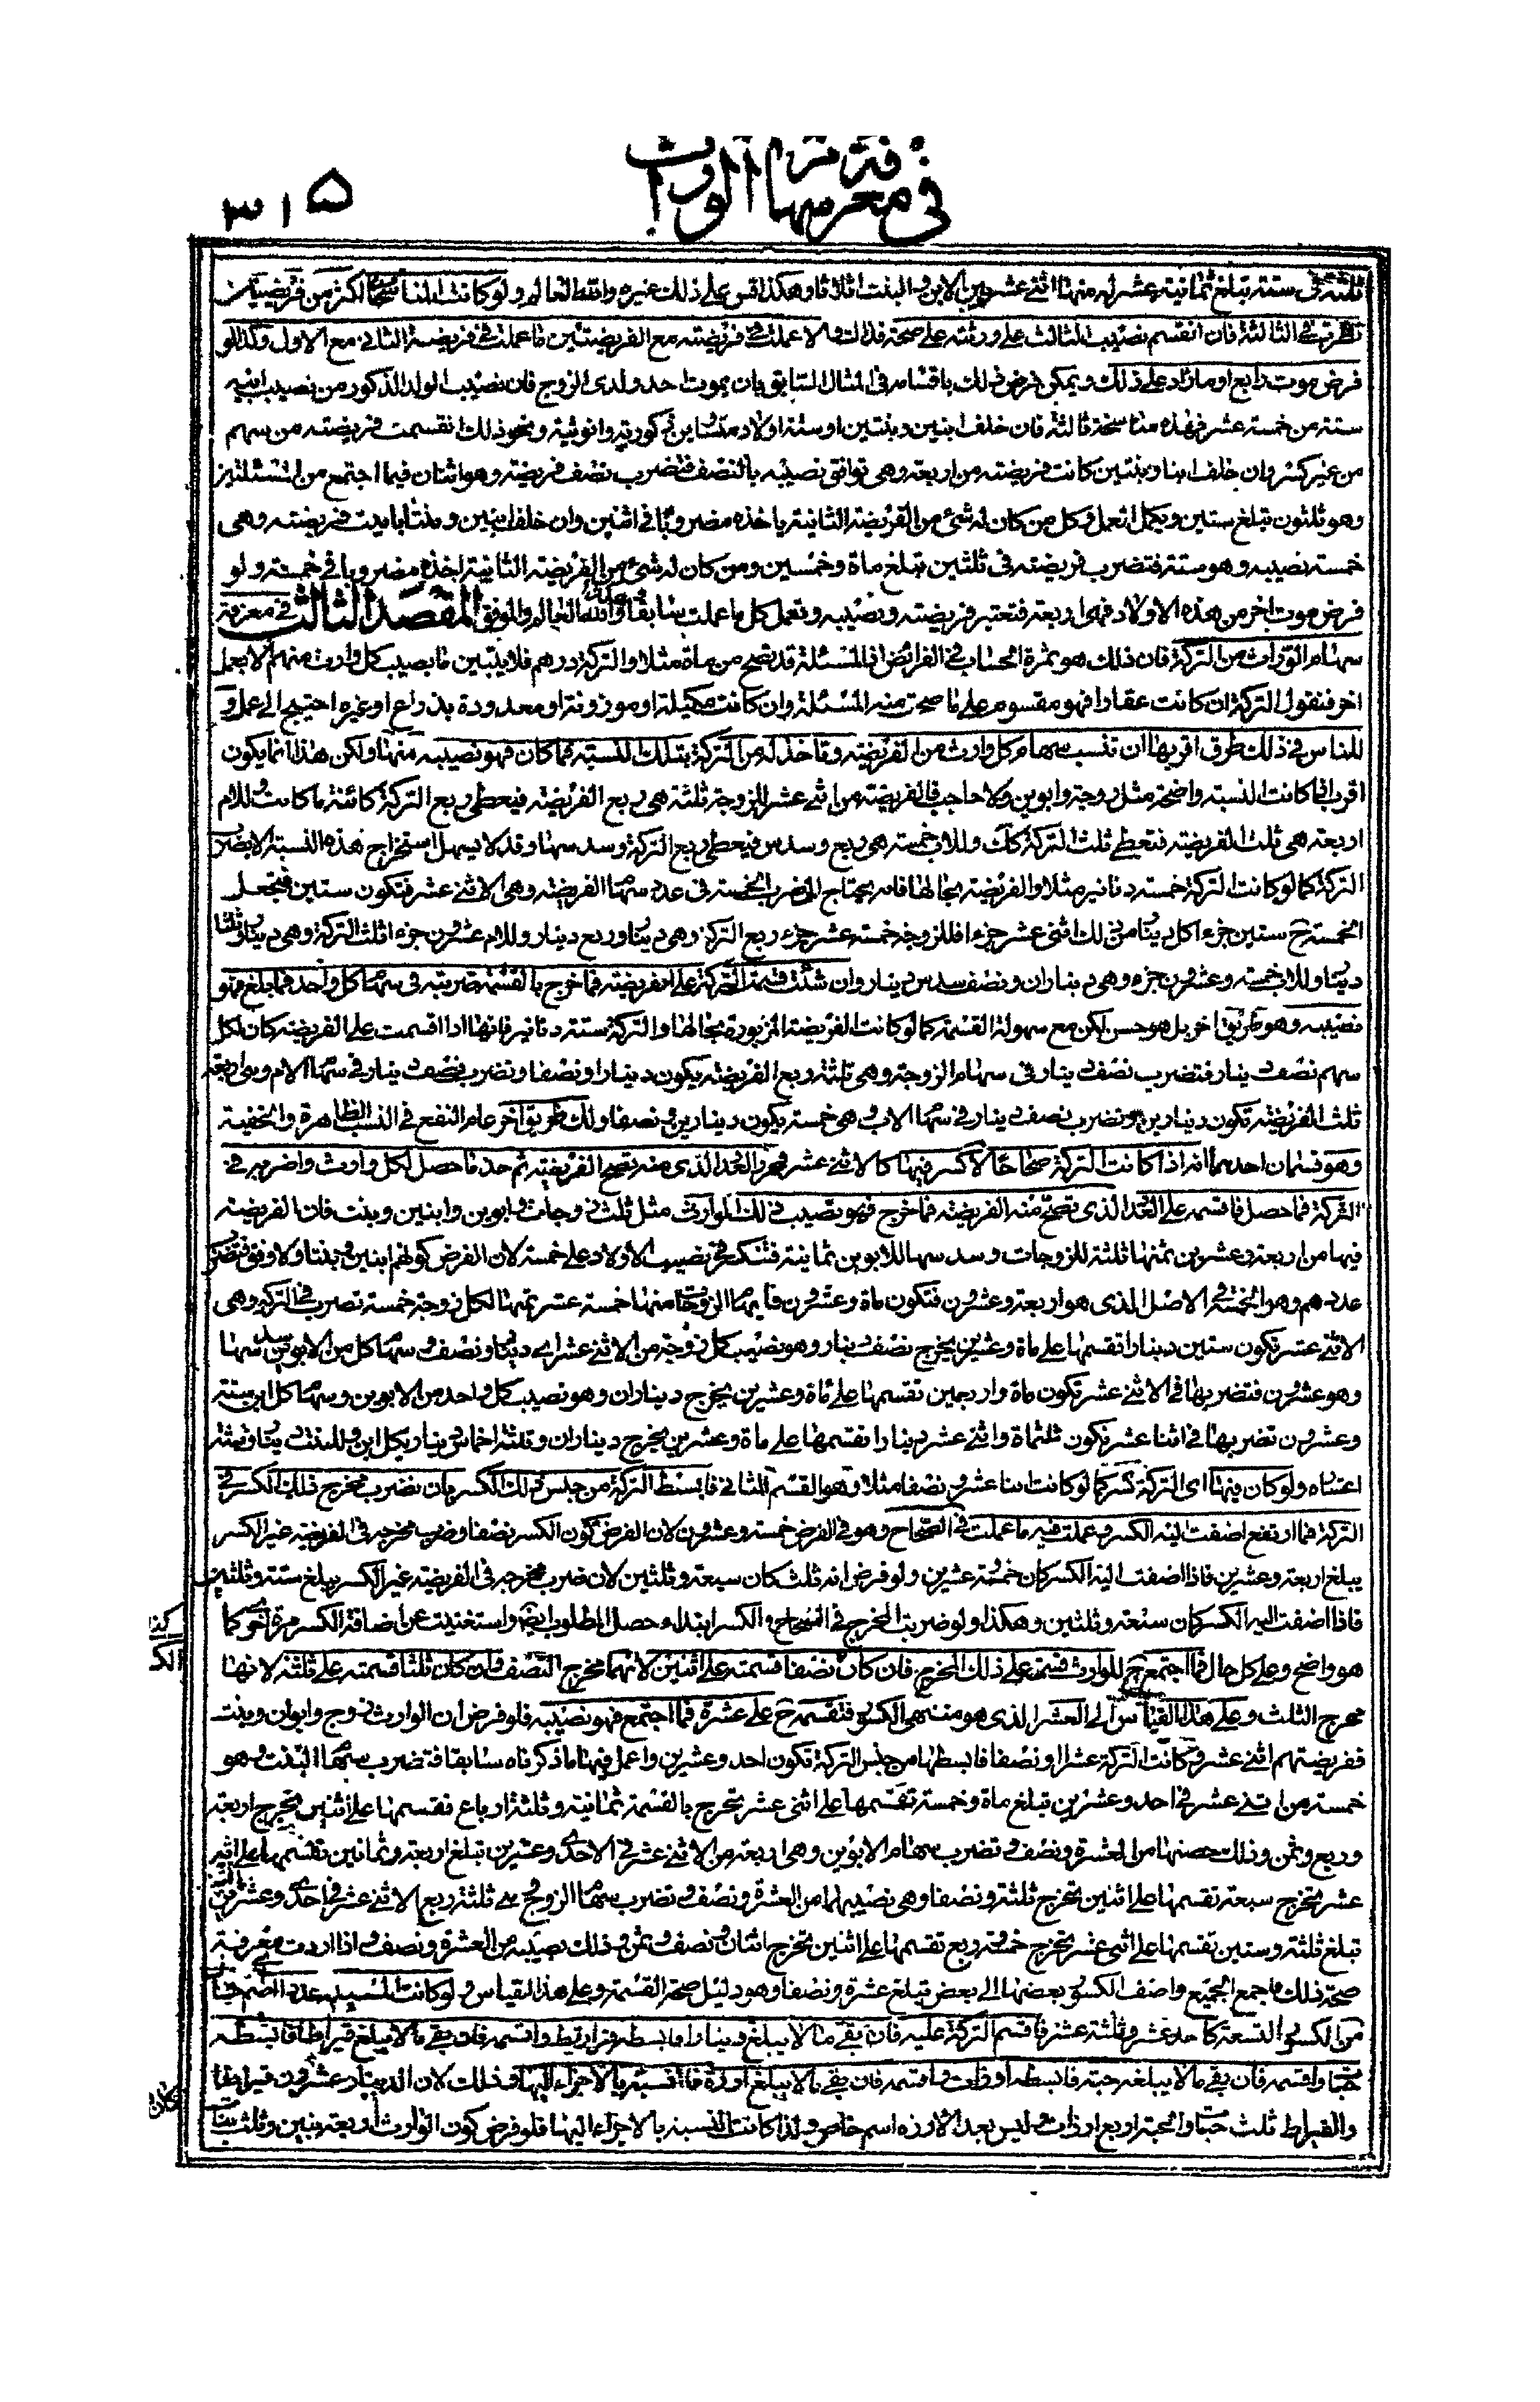 في معرفة سهام الوراث
٣١٥
ثلثة في ستة تبلغ ثمانية عشر له منها اثنى عشر بين الابن و البنت اثلاثا وهكذا قس على ذلك غيره والله العالم ولو كانت المناسخات اكثر من فريضتين
نظرت في الثالثة فان انقسم نصيب الثالث على ورثته على صحة فذاك والا عملت في فريضته مع الفريضتين ما عملت في فريضة الثاني مع الاول وكذا لو
فرض موت رابع او ما زاد على ذلك ويمكن فرض ذلك باقسامه في المثال السابق بان يموت احد ولدى الزوج فان نصيب الولد الذكور من نصيب ابيه
ستة من خمسة عشر فهذه مناسخة ثالثة فان خلف ابنين وبنتين او ستة اولاد متساوين ذكورية وانوثية ونحو ذلك انقسمت فريضته من سهم
من غير كسر وان خلف ابنا وبنتين كانت فريضته من اربعة وهي توافق نصيبه بالنصف فتضرب نصف فريضته وهو اثنان فيما اجتمع من المسئلتين
وهو ثلثون تبلغ ستين ويكمل العمل فكل من كان له شئ من الفريضة الثانية ياخذه مضروبا في اثنين وان خلف ابنين وبنتا باينت فريضته وهي
خمسة نصيبه وهو ستة فتضرب فريضته في ثلثين تبلغ ماة وخمسين ومن كان له شئ من الفريضة الثانية اخذه مضروبا في خمسة ولو
فرض موت اخر من هذه الاولاد فهى اربعة فتعتبر فريضته ونصيبه وتعمل كل ما عملت سابقا والله العالم والموفق المقصد الثالث في معرفة
سهام الوراث من التركة فان ذلك هو ثمرة الحساب في الفرائض فالمسئلة قد تصح من ماة مثلا والتركة درهم فلا يتبين ما يصيب كل وارث منهم الا بعمل
اخر فنقول التركة ان كانت عقارا فهو مقسوم على ما صحت منه المسئلة وان كانت مكيلة او موزونة او معدودة بذراع او غيره احتيج الى عمل و
للناس في ذلك طرق اقربها ان تنسب سهام كل وارث من الفريضة وتاخذ له من التركة بتلك النسبة فما كان فهو نصيبه منها ولكن هذا انما يكون
اقرب اذا كانت النسبة واضحة مثل زوجة وابوين ولا حاجب فالفريضة من اثنى عشر للزوجة ثلثة هي ربع الفريضة فيعطى ربع التركة كائنة ما كانت وللام
اربعة هي ثلث الفريضة فتعطى ثلث التركة كك وللاب خمسة هي ربع وسدس فيعطى ربع التركة وسدسها وقد لا يسهل استخراج هذه النسبة الا بضرب
التركة كما لو كانت التركة خمسة دنانير مثلا والفريضة بحالها فانه يحتاج الى ضرب الخمسة في عدد سهام الفريضة وهي الاثنى عشر فتكون ستين فتجعل
الخمسة ح ستين جزءا كل دينار من ذلك اثنى عشر جزءا فللزوجة خمسة عشر جزءا ربع التركة وهي دينار وربع دينار وللام عشرون جزءا ثلث التركة وهي دينار وثلثا
دينار وللاب خمسة وعشرون جزء وهي ديناران ونصف سدس دينار وان شئت قسمة التركة على الفريضة فما خرج بالقسمة ضربته في سهام كل واحد فما بلغ فهو
نصيبه وهو طريق اخر بل هو حسن لكن مع سهولة القسمة كما لو كانت الفريضة المزبورة بحالها والتركة ستة دنانير فانها اذا اقسمت على الفريضة كان لكل
سهم نصف دينار فتضرب نصف دينار في سهام الزوجة وهي ثلثة ربع الفريضة يكون دينارا ونصفا وتضرب نصف دينار في سهام الام وهي اربعة
ثلث الفريضة تكون دينارين وتضرب نصف دينار في سهام الاب وهي خمسة يكون دينارين ونصفا ولك طريق آخر عام النفع في النسب الظاهرة والخفية
وهو قسمان احدهما انه اذا كانت التركة صحاحا لا كسر فيها كالاثنى عشر فحرر العدد الذي منه تصح الفريضة ثم خذ ما حصل لكل وارث واضربه في
التركة فما حصل فاقسمه على العدد الذي تصح منه الفريضة فما خرج فهو نصيب ذلك الوارث مثل ثلث زوجات وابوين وابنين وبنت فان الفريضة
فيها من اربعة وعشرين ثمنها ثلثة للزوجات وسدسها للابوين ثمانية فتنكسر نصيب الاولاد على خمسة لان الفرض كونهم ابنين وبنتا ولا وفق فتضرب
عددهم وهو الخمسة في الاصل الذي هو اربعة وعشرون فتكون ماة وعشرون فا سهام الزوجات منها خمسة عشر ثمنها لكل زوجة خمسة تضرب في التركة وهي
الاثنى عشر تكون ستين دينارا تقسمها على ماة وعشرين يخرج نصف دينار وهو نصيب كل زوجة من الاثنى عشر اى دينار ونصف وسهام كل من الابوين سدسها
وهو عشرون فتضربها في الاثنى عشر تكون ماة واربعين تقسمها على ماة وعشرين يخرج ديناران وهو نصيب كل واحد من الابوين وسهام كل ابن ستة
وعشرون تضربها في اثنا عشر تكون ثلثماة واثنى عشر دينارا تقسمها على ماة وعشرين يخرج ديناران وثلثة اخماس دينار لكل ابن وللبنت دينار وثلثة
اعشاره ولو كان فيها اى التركة كسر كما لو كانت اثنا عشر ونصفا مثلا وهو القسم الثاني فابسط التركة من جنس ذلك الكسر بان تضرب مخرج ذلك الكسر في
التركة فما ارتفع اضفت اليه الكسر وعملت فيه ما عملت في الصحاح وهو في الفرض خمسة وعشرون لان الفرض كون الكسر نصفا وضرب مخرجه في الفريضة غير الكسر
يبلغ اربعة وعشرين فاذا اضفت اليه الكسر كان خمسة عشرين ولو فرض انه ثلث كان سبعة وثلثين لان ضرب مخرجه في الفريضة غير الكسر يبلغ ستة وثلثين
فاذا اضفت اليه الكسر كان سبعة وثلثين وهكذا ولو ضربت المخرج في الصحاح والكسر ابتداء وحصل المطلوب ايضا واستغنيت عن اضافة الكسر مرة اخرى كما
هو واضح وعلى كل حال فما اجتمع ح للوارث قسمته على ذلك المخرج فان كان نصفا قسمته على اثنين لانهما مخرج النصف وان كان ثلثا قسمته على ثلثة لانها
مخرج الثلث وعلى هذا القياس الى العشر الذي هو منتهى الكسور فتقسمه ح على عشرة فما اجتمع فهو نصيبه فلو فرض ان الوارث زوج وابوان وبنت
ففريضتهم اثنى عشر وكانت التركة عشرا ونصفا فابسطها من جنس التركة تكون احد وعشرين واعمل فيها ما ذكرناه سابقا فتضرب سهام البنت وهو
خمسة من اثنى عشر في احد وعشرين تبلغ ماة وخمسة تقسمها على اثنى عشر تخرج بالقسمة ثمانية وثلثة ارباع تقسمها على اثنين يخرج اربعة
وربع وثمن وذلك حصتها من العشرة ونصف وتضرب سهام الابوين وهي اربعة من الاثنى عشر في الاحدى وعشرين تبلغ اربعة وثمانين تقسمها على اثنى
عشر تخرج سبعة تقسمها على اثنين تخرج ثلثة ونصفا وهي نصيبهما من العشرة ونصف وتضرب سهام الزوج هي ثلثة ربع الاثنى عشر في احدى وعشرين
تبلغ ثلثة وستين تقسمها على اثنى عشر تخرج خمسة وربع تقسمها على اثنين تخرج اثنان ونصف وثمن وذلك نصيبه من العشرة ونصف واذا اردت معرفة
صحة ذلك فاجمع الجميع واضف الكسور بعضها الى بعض تبلغ عشرة ونصفا وهو دليل صحة القسمة وعلى هذا القياس ولو كانت المسئلة عددا اصم خاليا
من الكسور التسعة كاحد عشر وثلثة عشر فاقسم التركة عليه فان بقى ما لا يبلغ دينارا فابسطه قراريط واقسمه فان بقى ما لا يبلغ قيراطا فابسطه
حبات واقسمه فان بقى ما لا يبلغ حبة فابسطه ارزات واقسمه فان بقى ما لا يبلغ ارزة فانسبه بالاجزاء اليها وذلك لان الدينار عشرون قيراطا
والقيراط ثلث حبات والحبة اربع ارزات وليس بعد الارزة اسم خاص ولذا كانت النسبة بالاجزاء اليها فلو فرض كون الوارث اربعة بنين وثلث بنات